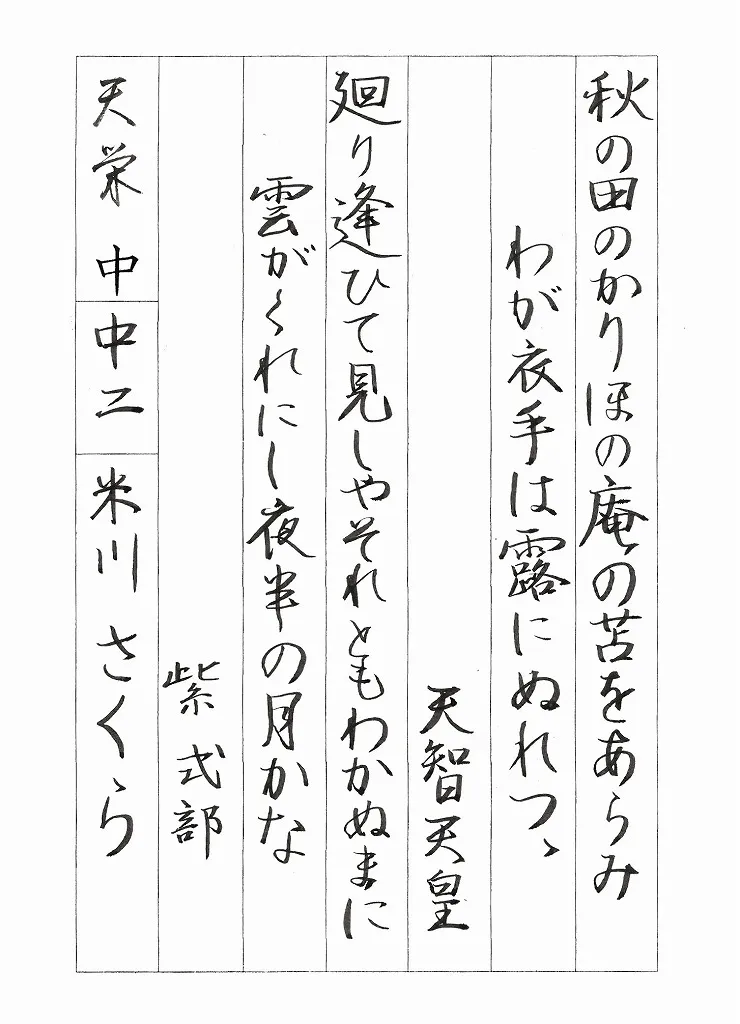 秋の田のかりほの庵の苫をあらみ
わが衣手は露にぬれつゝ
天智天皇
廻り逢ひて見しやそれともわかぬまに
雲がくれにし夜半の月かな
紫式部
天栄中
中二
米川さくら